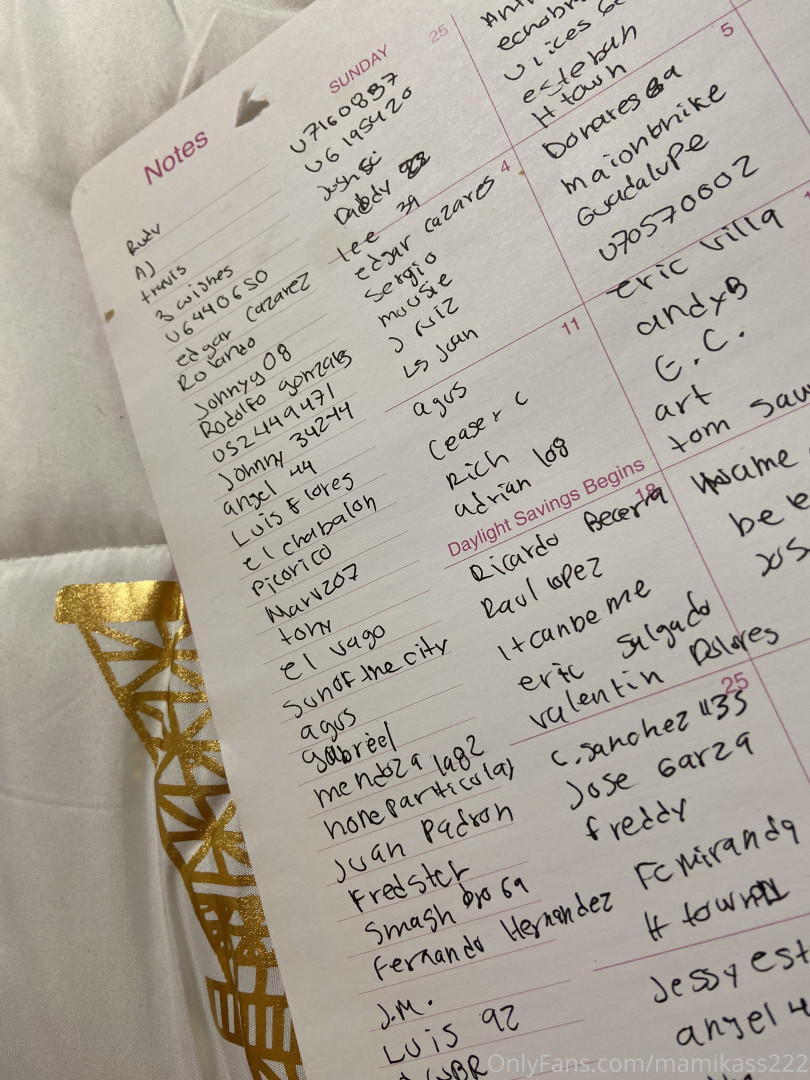 Notes
Rudy
AJ
travis
3 wishes
U6440650
edgar Cazarez
Rolando
Johnny g08
Rodolfo gonzales
U52449471
Johnny 34244
angel 44
Luis flores
el chabalon
Picorico
Marv207
tony
el vago
Sun of the city
agus
gabriel
mendoza 1982
noneparticolaj
Juan Padron
Fredster
Smash bro 69
Fernando Hernandez
J.M.
Luis 92
SUNDAY
25
U7160887
U6195420
Josh sc
Daddy
Lee 39
4
edgar cazares
Sergio
mousie
J ruiz
Ls Juan
11
agus
Ceaser C
Rich
adrian 108
Daylight Savings Begins
18
Ricardo Becerra
Raul lopez
itcanbe me
eric Salgado
valentin Dolores
25
C. sanchez 1135
Jose Garza
freddy
FC Miranda
H town
echobr
Ulices
esteban
H town
5
Donares 69
maionbhike
Guadalupe
U70570602
eric Villa
andyB
G.C.
art
tom
be
Jessy
angel
OnlyFans.com/mamikass222